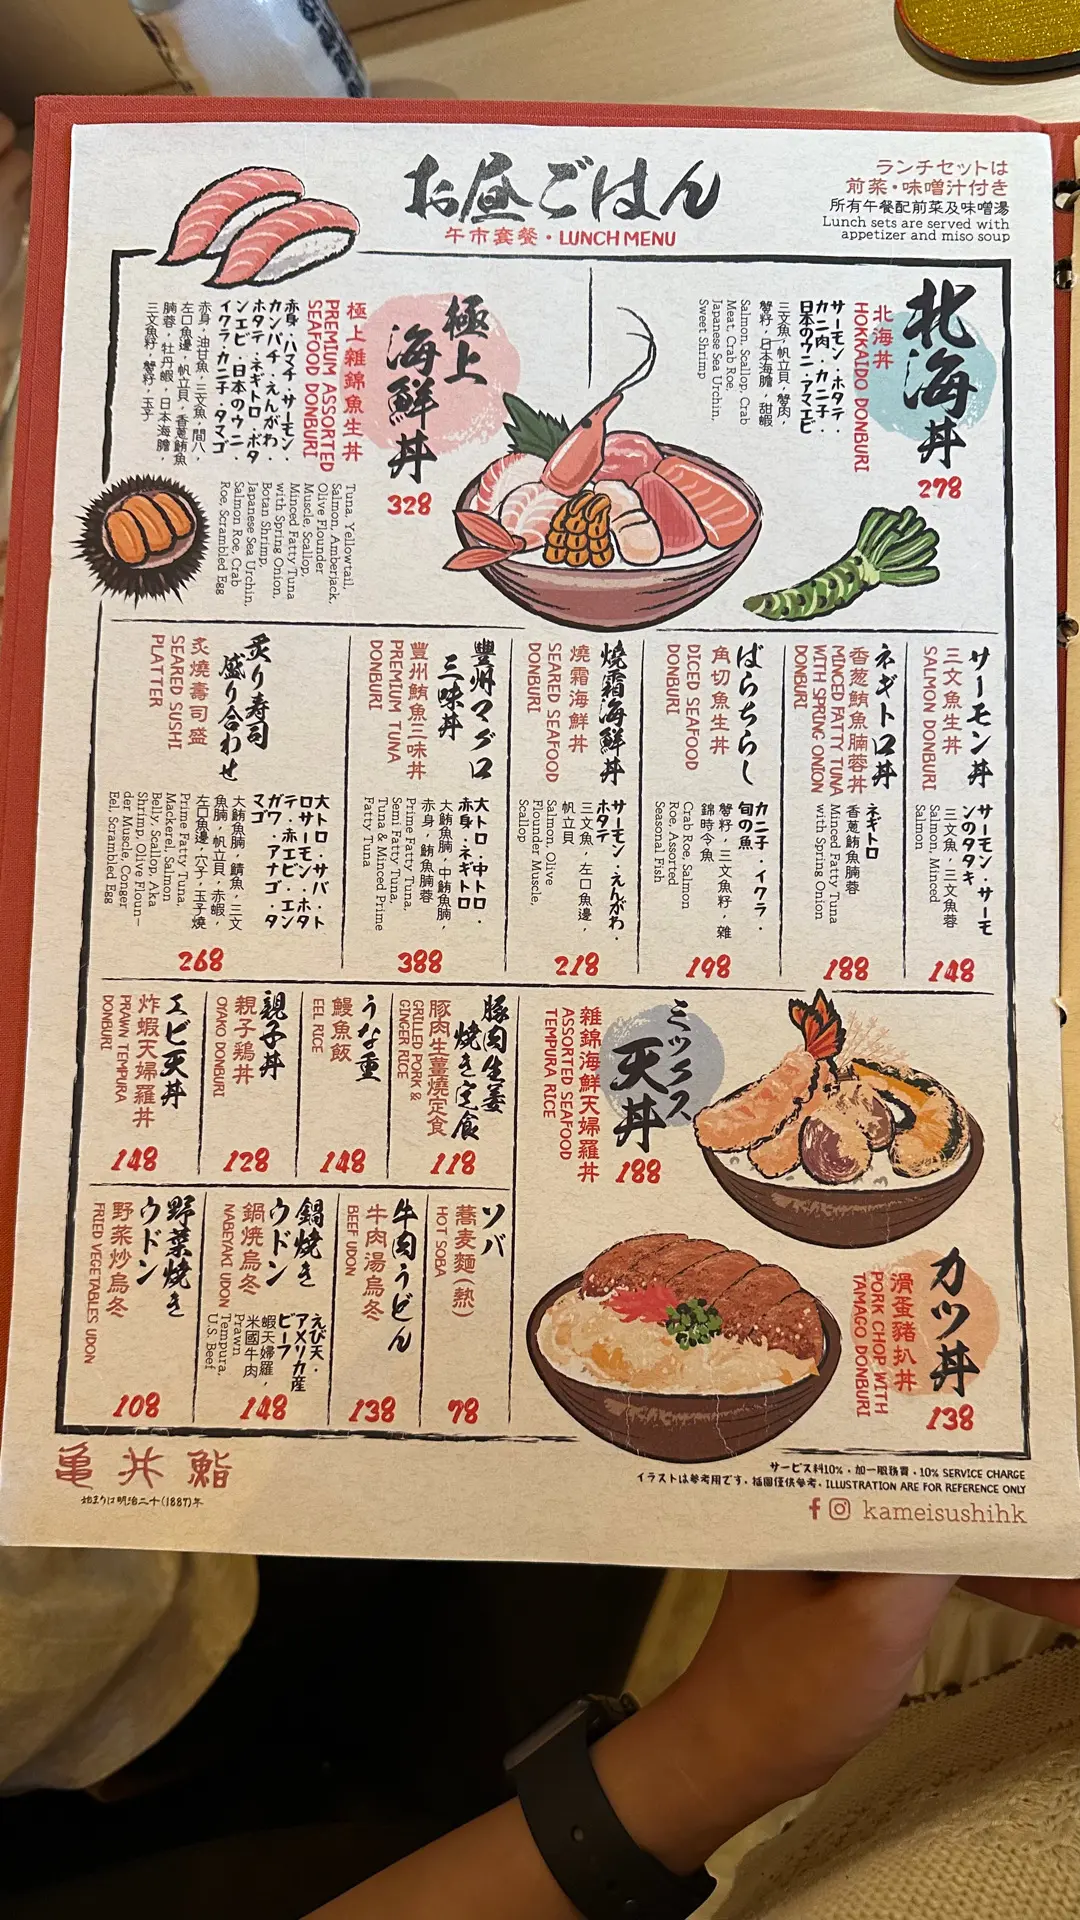 お昼ごはん
午市套餐・LUNCH MENU
ランチセットは
前菜・味噌汁付き
所有午餐配前菜及味噌湯
Lunch sets are served with
appetizer and miso soup
北海丼
北海丼
HOKKAIDO DONBURI
278
サーモン・ホタテ・
カニ肉・カニ子・
日本のウニ・アマエビ
三文魚，帆立貝，蟹肉，
蟹籽，日本海膽，甜蝦
Salmon, Scallop, Crab
Meat, Crab Roe,
Japanese Sea Urchin,
Sweet Shrimp
極上
海鮮丼
328
極上雜錦魚生丼
PREMIUM ASSORTED
SEAFOOD DONBURI
赤身・ハマチ・サーモン・
カンパチ・えんがわ・
ホタテ・ネギトロ・ボタ
ンエビ・日本のウニ・
イクラ・カニ子・タマゴ
赤身，油甘魚，三文魚，間八，
左口魚邊，帆立貝，香蔥鮪魚
腩蓉，牡丹蝦，日本海膽，
三文魚籽，蟹籽，玉子
Tuna, Yellowtail,
Salmon, Amberjack,
Olive Flounder
Muscle, Scallop,
Minced Fatty Tuna
with Spring Onion,
Botan Shrimp,
Japanese Sea Urchin,
Salmon Roe, Crab
Roe, Scrambled Egg
サーモン丼
三文魚生丼
SALMON DONBURI
サーモン・サーモ
ンのタタキ
三文魚，三文魚蓉
Salmon, Minced
Salmon
148
ネギトロ丼
香葱鮪魚腩蓉丼
MINCED FATTY TUNA
WITH SPRING ONION
DONBURI
ネギトロ
香蔥鮪魚腩蓉
Minced Fatty Tuna
with Spring Onion
188
ばらちらし
角切魚生丼
DICED SEAFOOD
DONBURI
カニ子・イクラ・
旬の魚
蟹籽，三文魚籽，雜
錦時令魚
Crab Roe, Salmon
Roe, Assorted
Seasonal Fish
198
燒霜海鮮丼
燒霜海鮮丼
SEARED SEAFOOD
DONBURI
サーモン・えんがわ・
ホタテ
三文魚，左口魚邊，
帆立貝
Salmon, Olive
Flounder Muscle,
Scallop
218
豐州マグロ
三味丼
豐州鮪魚三味丼
PREMIUM TUNA
DONBURI
大トロ・中トロ・
赤身・ネギトロ
大鮪魚腩，中鮪魚腩，
赤身，鮪魚腩蓉
Prime Fatty Tuna,
Semi Fatty Tuna,
Tuna & Minced Prime
Fatty Tuna
388
炙り寿司
盛り合わせ
炙燒壽司盛
SEARED SUSHI
PLATTER
大トロ・サバ・ト
ロサーモン・ホタ
テ・赤エビ・エン
ガワ・アナゴ・タ
マゴ
大鮪魚腩，鯖魚，三文
魚腩，帆立貝，赤蝦，
左口魚邊，穴子，玉子燒
Prime Fatty Tuna,
Mackerel, Salmon
Belly, Scallop, Aka
Shrimp, Olive Floun-
der Muscle, Conger
Eel, Scrambled Egg
268
ミックス
天丼
雜錦海鮮天婦羅丼
ASSORTED SEAFOOD
TEMPURA RICE
188
豚肉生姜
焼き定食
豚肉生薑燒定食
GRILLED PORK &
GINGER RICE
118
うな重
鰻魚飯
EEL RICE
148
親子丼
親子鶏丼
OYAKO DONBURI
128
エビ天丼
炸蝦天婦羅丼
PRAWN TEMPURA
DONBURI
148
カツ丼
滑蛋豬扒丼
PORK CHOP WITH
TAMAGO DONBURI
138
ソバ
蕎麦麵(熱)
HOT SOBA
78
牛肉うどん
牛肉湯烏冬
BEEF UDON
138
鍋焼き
ウドン
鍋焼烏冬
NABEYAKI UDON
えび天・
アメリカ産
ビーフ
蝦天婦羅，
米國牛肉
Prawn
Tempura,
U.S. Beef
148
野菜焼き
ウドン
野菜炒烏冬
FRIED VEGETABLES UDON
108
亀井鮨
始まりは明治二十(1887)年
サービス料10%・加一服務費・10% SERVICE CHARGE
イラストは参考用です・插圖僅供參考・ILLUSTRATION ARE FOR REFERENCE ONLY
kameisushihk